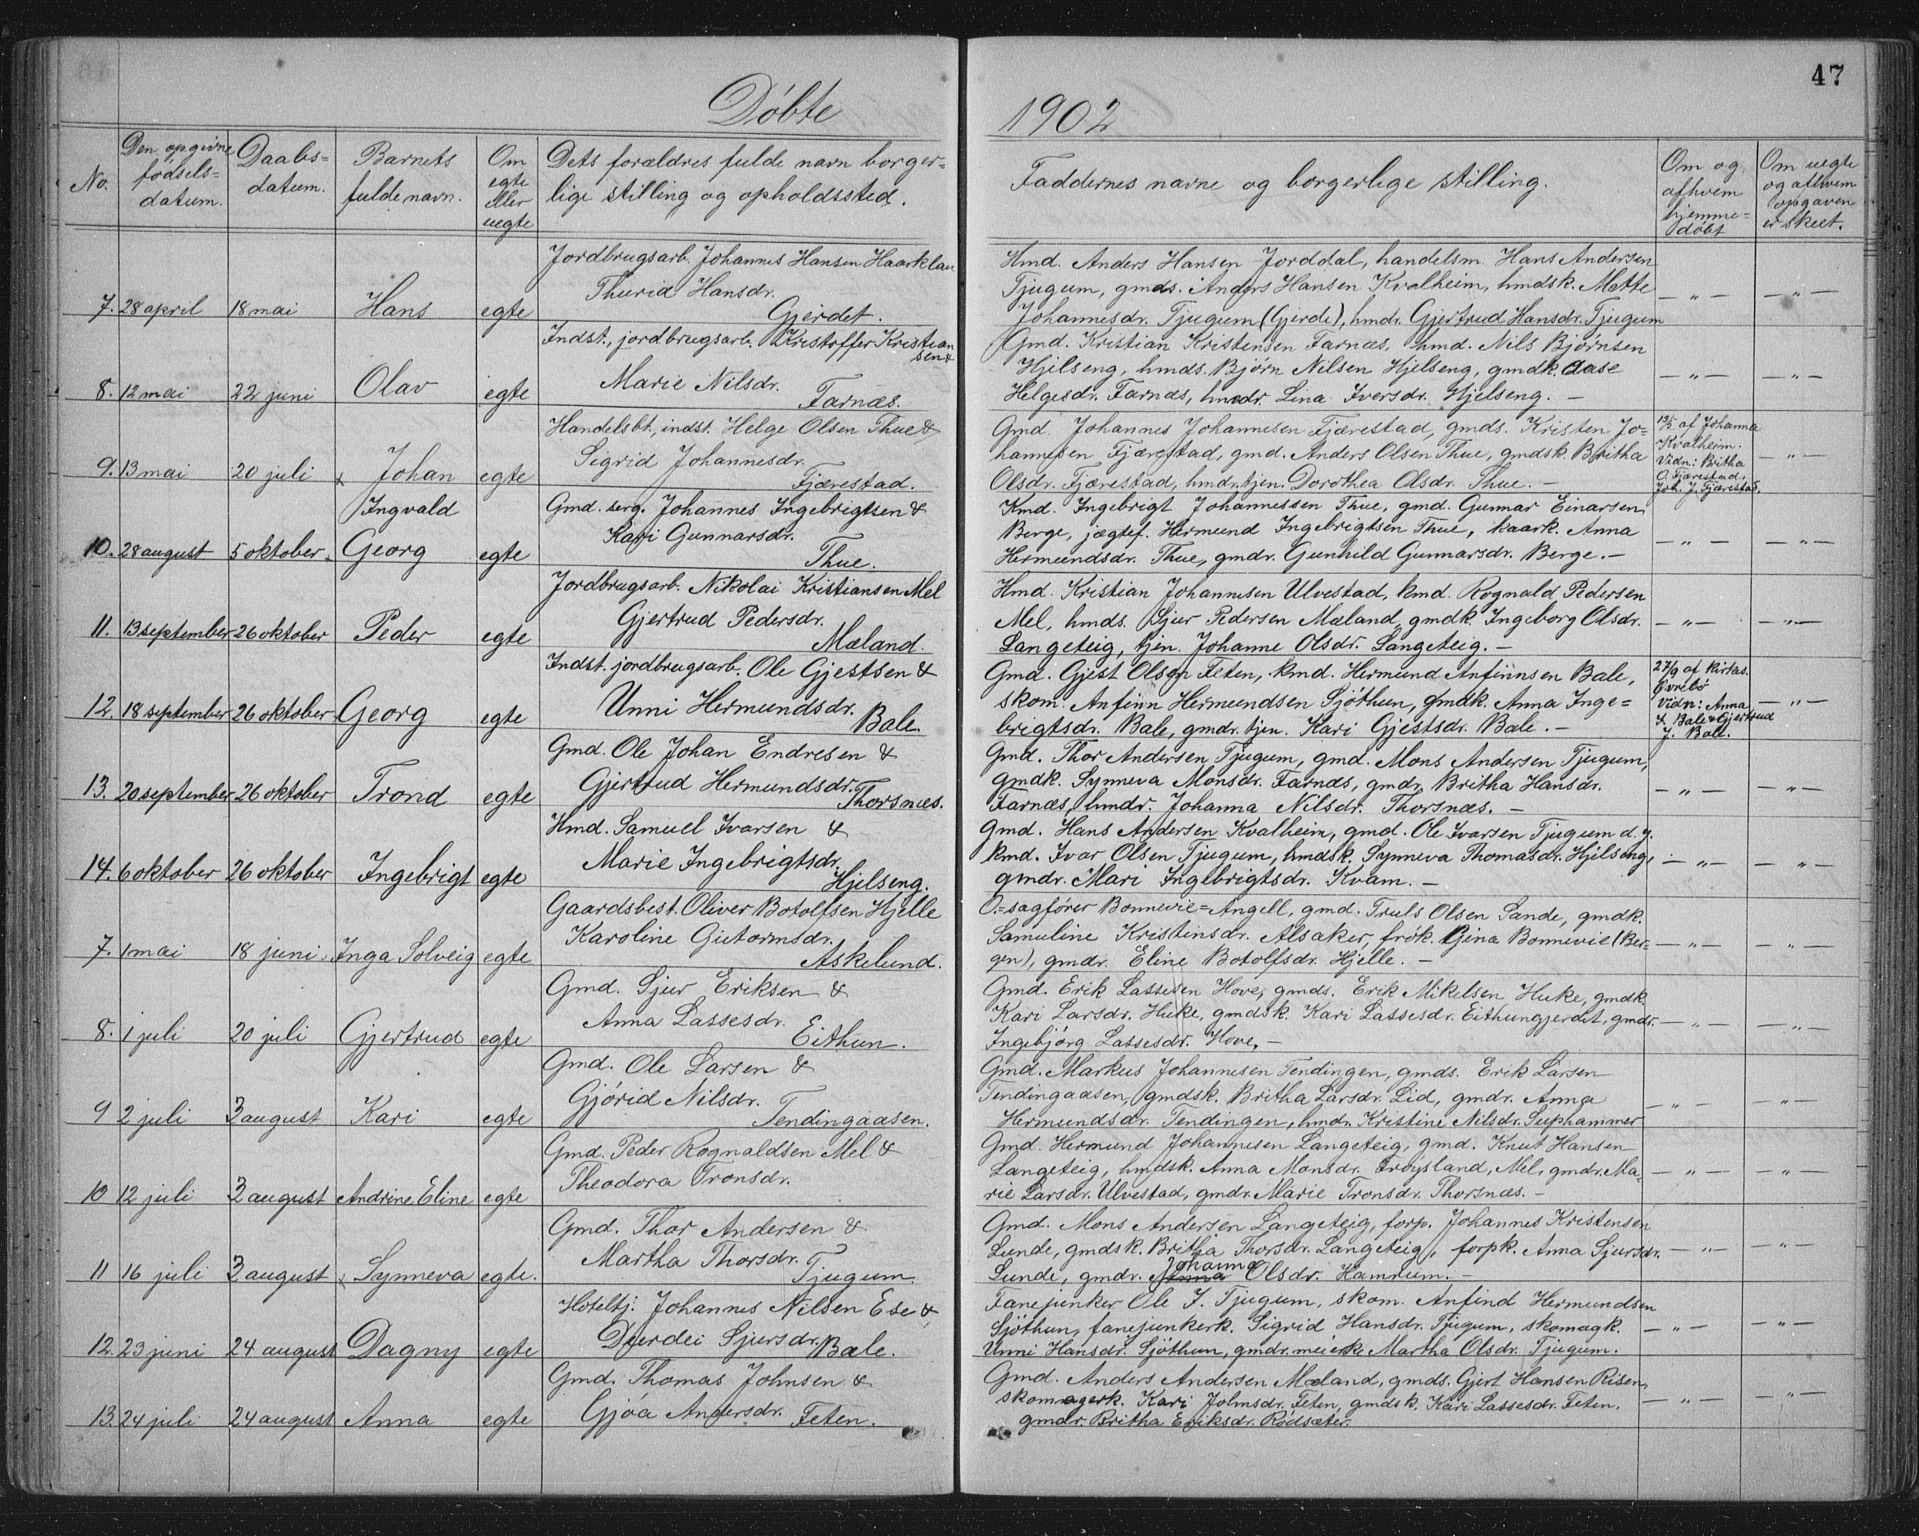 47
Döbte
1902
No.
Den opgivne
fødsels-
datum.
Daabs-
datum.
Barnets
fulde navn.
Om
egte
eller
uegte
Dets forældres fulde navn borger-
lige stilling og opholdssted.
Faddernes navne og borgerlige stilling.
Om og
afhvem
hjemme-
døbt
Om uegte
og afhvem
opgaven
er skeet.
Jordbrugsarb. Johannes Hansen Haarklau
Thurid Hansdr.
7. 28 april 18 mai Hans egte Gjerdet.
Hmd. Anders Hansen Jorddal, handelsm. Hans Andersen
Tjugum, gmds. Anders Hansen Kvalheim, hmdsk. Mette — „ — — „ —
Johannesdr. Tjugum (Gjerde), hmdr. Gjertrud Hansdr. Tjugum
Indst., jordbrugsarb. Kristoffer Kristian
sen &
Marie Nilsdr.
8. 12 mai 22 juni Olav egte Farnæs.
Gmd. Kristian Kristensen Farnæs, hmd. Nils Bjørnsen
Hjelseng, hmds. Bjørn Nilsen Hjelseng, gmdk. Aase — „ — — „ —
Helgesdr. Farnæs, hmdr. Lina Iversdr. Hjelseng. —
Handelsbt., indst. Helge Olsen Thue &
Sigrid Johannesdr.
9. 13 mai 20 juli Johan egte Fjærestad.
Gmd. Johannes Johannesen Fjærestad, gmds. Kristen Jo-
hannesen Fjærestad, gmd. Anders Olsen Thue, gmdsk. Britha
Olsdr. Fjærestad, hmdr. tjen. Dorothea Olsdr. Thue. —
13/5 af Johanna
Kvalheim.
Vidn: Britha
O. Fjærestad,
Joh. J. Fjærestad.
— „ —
Ingvald Gmd. serg. Johannes Ingebrigtsen &
Kari Gunnarsdr.
10. 28 august 5 oktober Georg egte Thue.
Kmd. Ingebrigt Johannessen Thue, gmd. Gunnar Einarsen
Berge, jægtef. Hermund Ingebrigtsen Thue, kaark. Anna — „ — — „ —
Hermundsdr. Thue, gmdr. Gunhild Gunnarsdr. Berge. —
Jordbrugsarb. Nikolai Kristiansen Mel
Gjertrud Pedersdr.
11. 13 september 26 oktober Peder egte Mæland.
Hmd. Kristian Johannesen Ulvestad, kmd. Rognald Pedersen
Mel, hmds. Sjur Pedersen Mæland, gmdk Ingeborg Olsdr. — „ — — „ —
Langeteig, tjen. Johanne Olsdr. Langeteig. —
Indst. jordbrugsarb. Ole Gjestsen &
Unni Hermundsdr.
12. 18 september 26 oktober Georg egte Bale.
Gmd. Gjest Olsen Feten, kmd. Hermund Anfinnsen Bale,
skom. Anfinn Hermundsen Sjøthun, gmdk. Anna Inge-
brigtsdr. Bale, gmdr. tjen. Kari Gjestsdr. Bale. —
27/9 af kirkes.
Øvrebö
Vidn: Anna
Bale & Gjertrud
J. Bale.
— „ —
Gmd. Ole Johan Endresen &
Gjertrud Hermundsdr.
13. 20 september 26 oktober Trond egte Thorsnæs.
Gmd. Thor Andersen Tjugum, gmd. Mons Andersen Tjugum,
gmdk. Synneva Monsdr. Farnæs, gmdr. Britha Hansdr. — „ — — „ —
Farnæs, hmdr. Johanna Nilsdr. Thorsnæs. —
Hmd. Samuel Ivarsen &
Marie Ingebrigtsdr.
14. 6 oktober 26 oktober Ingebrigt egte Hjelseng.
Gmd. Hans Andersen Kvalheim, gmd. Ole Ivarsen Tjugum d.y.
kmd. Ivar Olsen Tjugum, hmdsk. Synneva Thomasdr. Hjelseng, — „ — — „ —
gmdr. Mari Ingebrigtsdr. Kvam. —
Gaardsbest. Oliver Botolfsen Hjelle
Karoline Gutormsdr.
7. 1 mai 18 juni Inga Solveig egte Askelund.
O.=sagfører Bonnevie=Angell, gmd. Truls Olsen Sande, gmdk.
Samuline Kristensdr. Alsaker, frøk. Gina Bonnevie (Ber- — „ — — „ —
gen), gmdr. Eline Botolfsdr. Hjelle. —
Gmd. Sjur Eriksen &
Anna Lassesdr.
8. 1 juli 20 juli Gjertrud egte Eithun.
Gmd. Erik Lassesen Hove, gmds. Erik Mikelsen Huke, gmdk
Kari Larsdr. Huke, gmdsk. Kari Lassesdr. Eithungjerdet, gmdr. — „ — — „ —
Ingebjørg Lassesdr. Hove. —
Gmd. Ole Larsen &
Gjørid Nilsdr.
9 2 juli 3 august Kari egte Tendingaasen.
Gmd. Markus Johannesen Tendingen, gmds. Erik Larsen
Tendingaasen, gmdsk. Britha Larsdr. Lid, gmdr. Anna — „ — — „ —
Hermundsdr. Tendingen, hmdr. Kristine Nilsdr. Suphammer
Gmd. Peder Rognaldsen Mel &
Theodora Tronsdr.
10 12 juli 3 august Andrine Eline egte
Gmd. Hermund Johannesen Langeteig, gmd. Knut Hansen
Langeteig, hmdsk. Anna Monsdr. Frøysland, Mel, gmdr. Ma- — „ — — „ —
rie Larsdr. Ulvestad, gmdr. Marie Tronsdr. Thorsnæs. —
Gmd. Thor Andersen &
Martha Thorsdr.
11 16 juli 3 august Synneva egte. Tjugum
Gmd. Mons Andersen Langeteig, forp. Johannes Kristensen
Lunde, gmdsk. Britha Thorsdr. Langeteig, forpk. Anna Sjursdr. — „ — — „ —
Johanna
Lunde, gmdr. Anna Olsdr. Hamrum. —
Hoteltj. Johannes Nilsen Ese &
Durdei Sjursdr.
12. 23 juni 24 august Dagny egte Bale.
Fanejunker Ole J. Tjugum, skom. Anfind Hermundsen
Sjøthun, fanejunkerk. Sigrid Hansdr. Tjugum, skomagk. — „ — — „ —
Unni Hansdr. Sjøthun, gmdr. meiersk Martha Olsdr. Tjugum.
Gmd. Thomas Johnsen &
Gjøa Andersdr.
13. 24 juli 24 august Anna egte Feten.
Gmd. Anders Andersen Mæland, gmds. Gjert Hansen Risen,
skomagerk. Kari Johnsdr. Feten, gmdsk. Kari Lassesdr. Feten. — „ — — „ —
gmdr. Britha Eriksdr. Rödsæter.